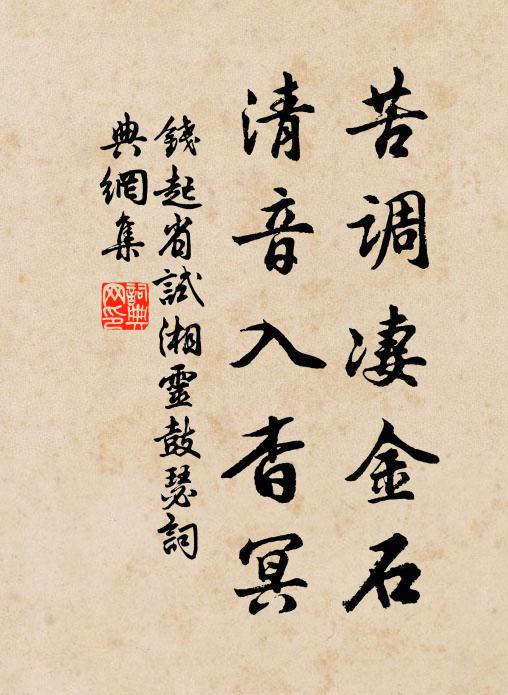 苦调凄金石
清音入杳冥
錢起省試湘靈鼓瑟詞
典網集
詞典
网印